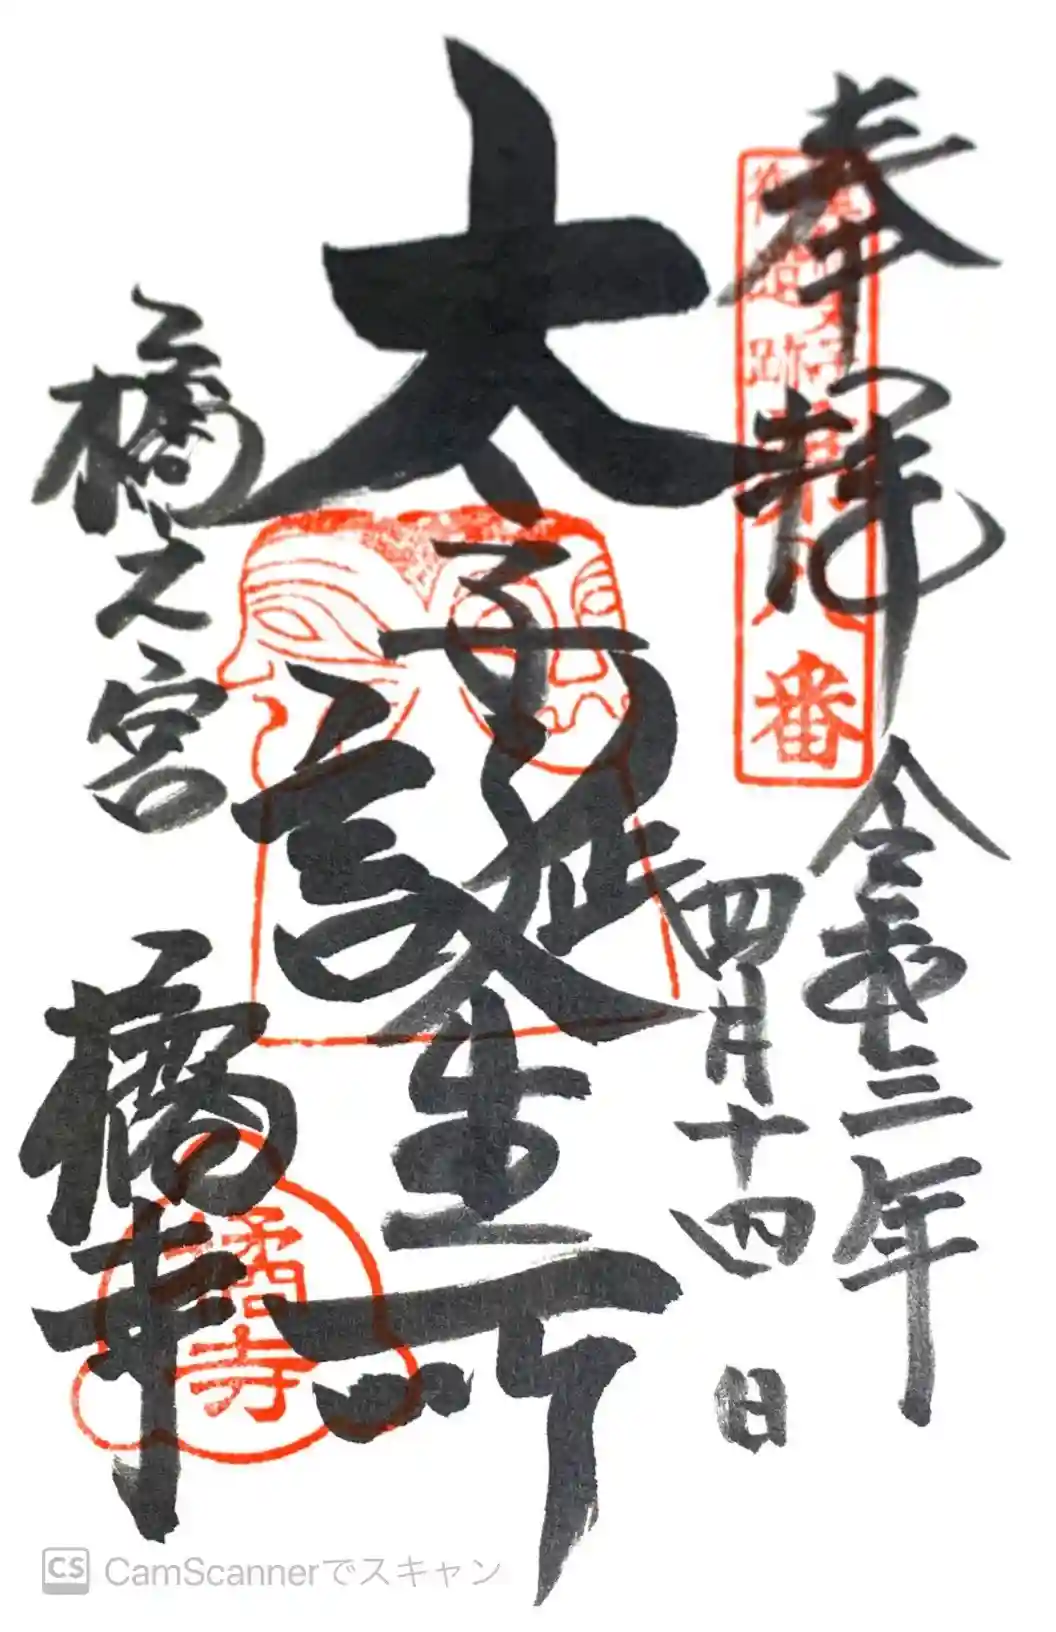 奉拝
令和三年
四月十四日
番
太子
誕生所
橘之宮
橘寺
橘寺
CS CamScannerでスキャン